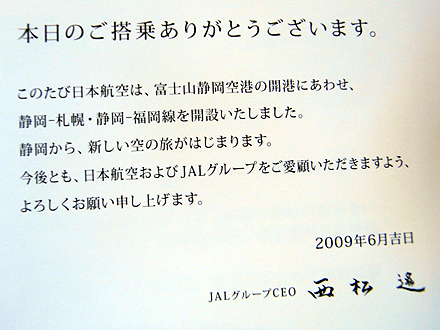 本日のご搭乗ありがとうございます。
このたび日本航空は、富士山静岡空港の開港にあわせ、
静岡-札幌・静岡-福岡線を開設いたしました。
静岡から、新しい空の旅がはじまります。
今後とも、日本航空およびJALグループをご愛顧いただきますよう、
よろしくお願い申し上げます。
2009年6月吉日
JALグループCEO 西松 遙